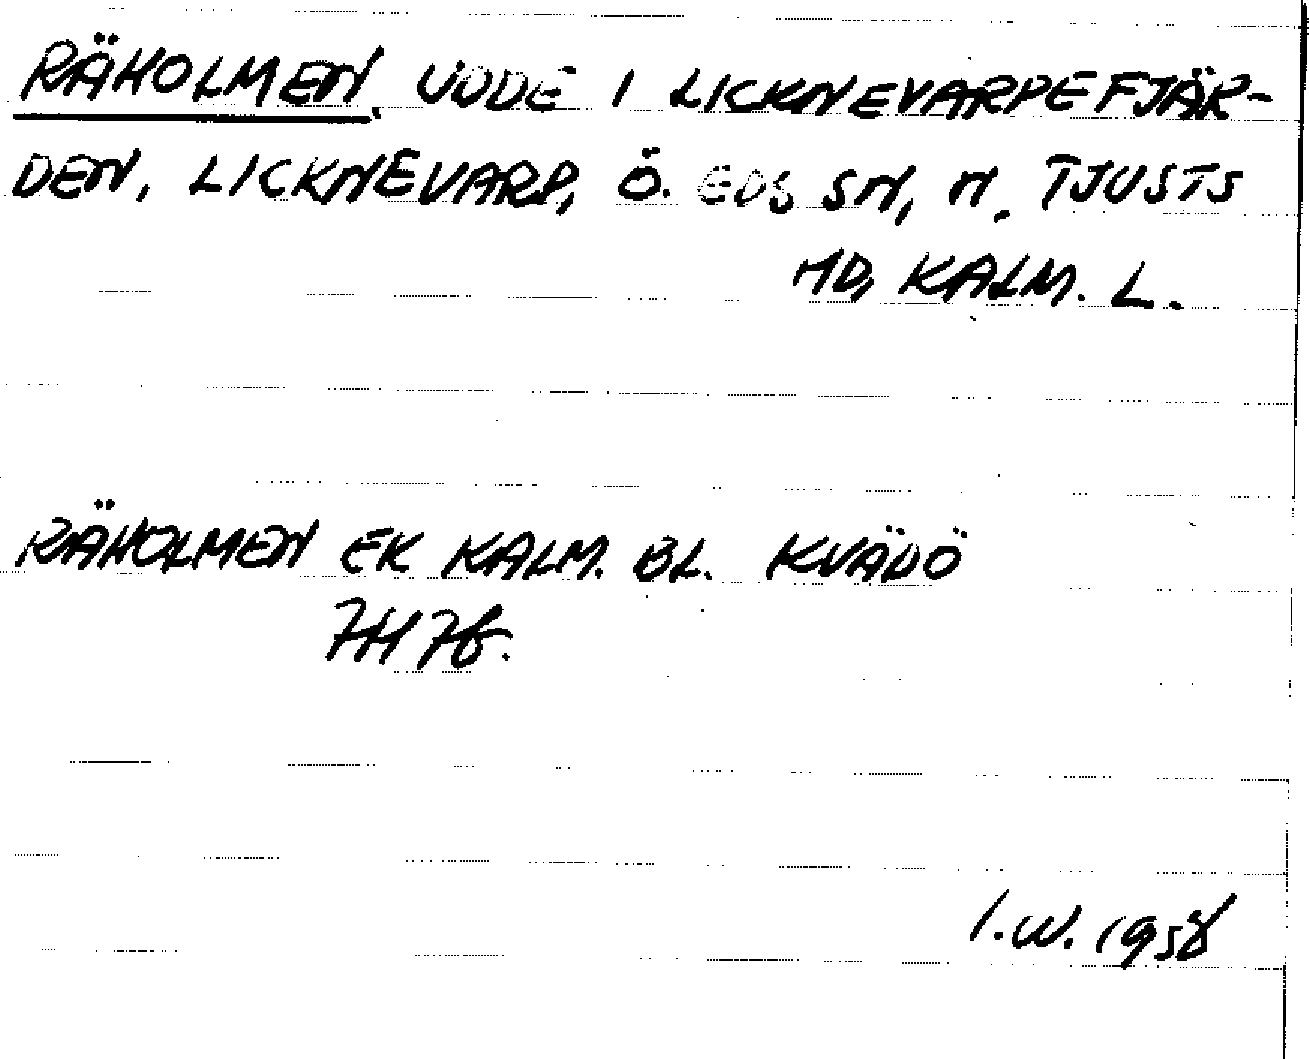 RÄHOLMEN, UDDE I LICKNEVARPEFJÄR-
DEN, LICKNEVARP, Ö. EDS SN, N. TJUSTS
HD, KALM. L.
RÄHOLMEN EK KALM. BL. KVÄDÖ
7H 7f.
I.W. 1958